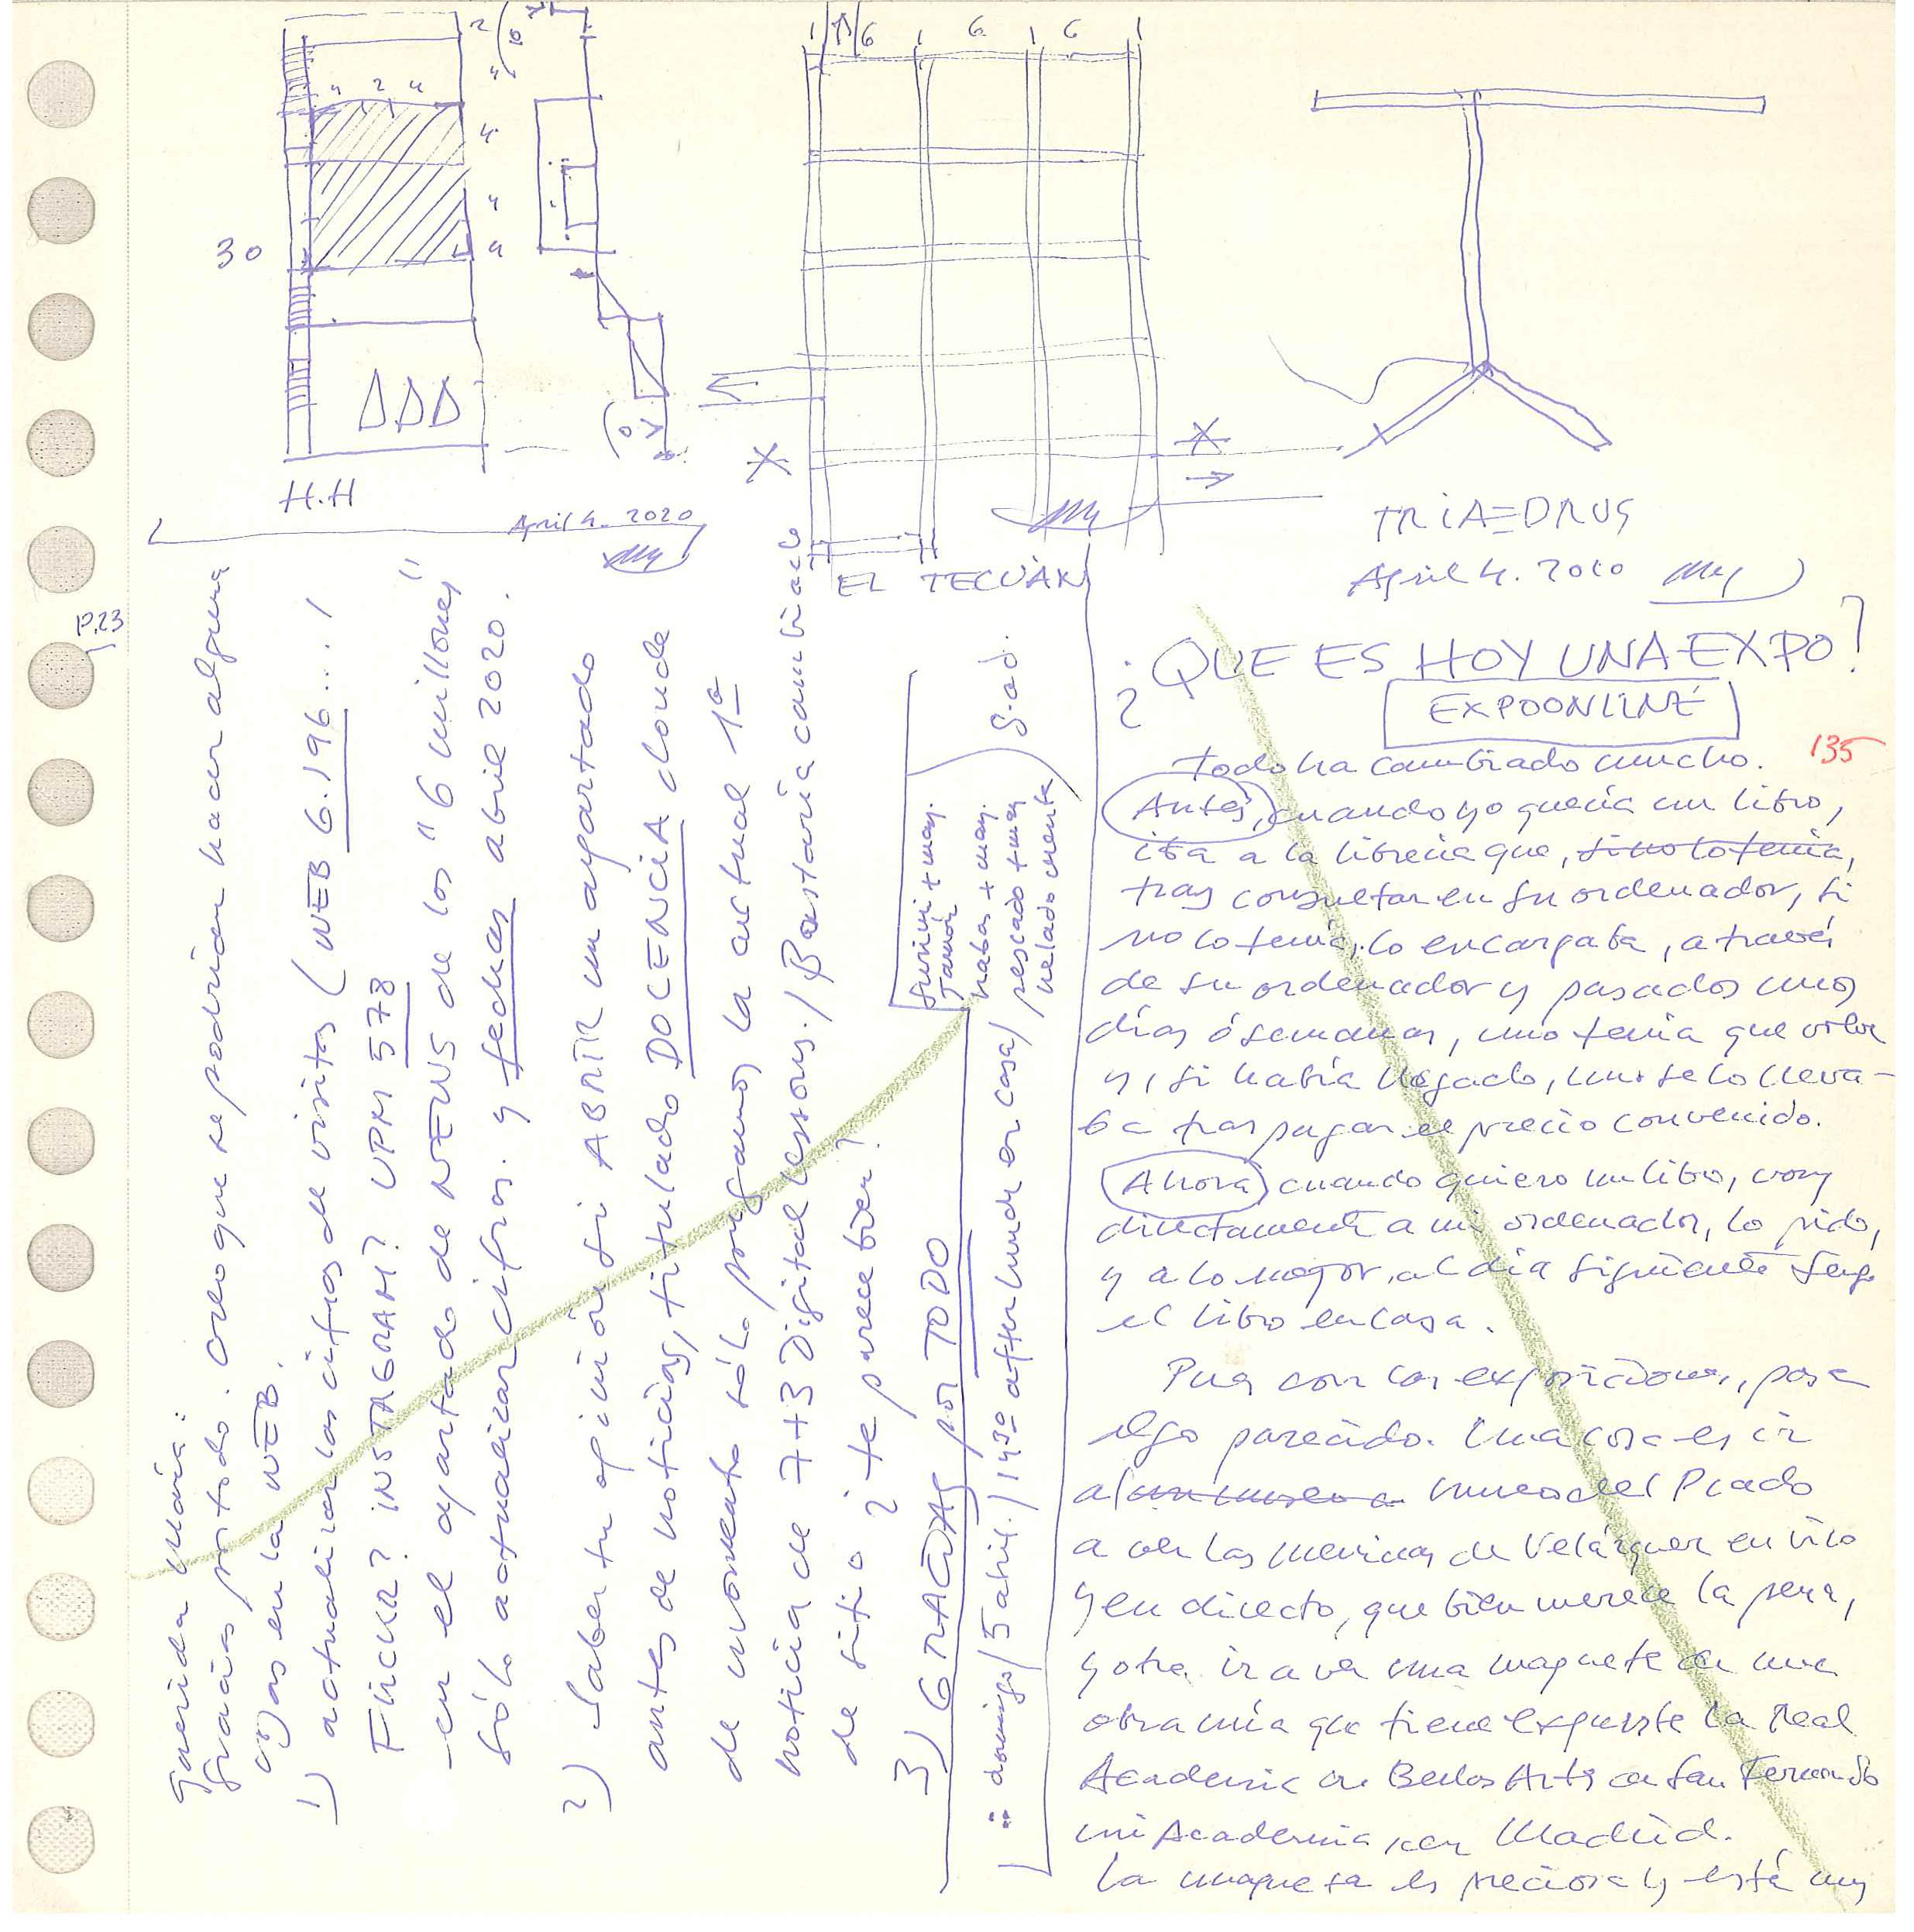 2 (10
1 1 6 1 6 1 6 1
" 2 "
"
"
"
"
30
H.H
April 4. 2020
EL TECUÁN
TRIA=DRUG
April 4. 2020
P.23
querida María:
gracias por todo. Creo que se podrían hacer alguna
cosas en la WEB.
1) actualizar las cifras de visitas (WEB 6.196...!
FLICKR? INSTAGRAM? UPM 578
-en el apartado de NEWS de los "6 millones"
sólo actualizar cifras. y fechas abril 2020.
2) Saber tu opinión si ABRIR un apartado
antes de noticias, titulado DOCENCIA donde
de momento sólo pongamos la actual 1ª
noticia de 7+3 Digital lessons. / Bastaría cambiarlo
de sitio ¿te parece bien?
3) GRACIAS por TODO
domingo / 5 abril. / 14³⁰ after lunch en casa /
surimi + may.
habas + may.
pescado + may
helado menta
¿QUE ES HOY UNA EXPO?
EXPOONLINE
135
Todo ha cambiado mucho.
Antes, cuando yo quería un libro,
iba a la librería que, si no lo tenía,
tras consultar en su ordenador, si
no lo tenía, lo encargaba, a través
de su ordenador y pasados unos
días ó semanas, uno tenía que volver
y, si había llegado, uno se lo lleva-
ba tras pagar el precio convenido.
Ahora cuando quiero un libro, voy
directamente a mi ordenador, lo pido,
y a lo mejor, al día siguiente tengo
el libro en casa.
Pues con las exposiciones, pasa
algo parecido. Una cosa es ir
al museo del Prado
a ver las meninas de Velázquez en vivo
y en directo, que bien merece la pena,
y otra ir a ver una maqueta de una
obra mía que tiene expuesta la Real
Academia de Bellas Arts de San Fernando
mi Academia, en Madrid.
La maqueta es preciosa y está muy